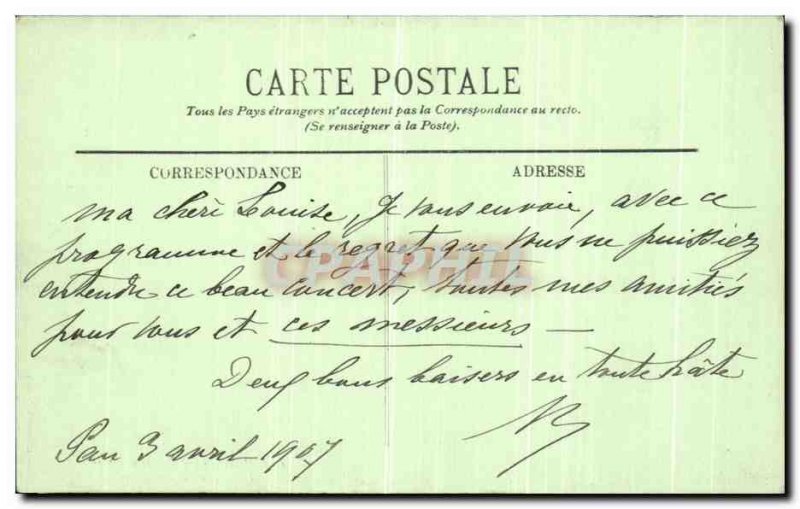 CARTE POSTALE
Tous les Pays étrangers n'acceptent pas la Correspondance au recto.
(Se renseigner à la Poste).
CORRESPONDANCE
ADRESSE
Ma chèri Louise, Je vous envoie, avec ce
programme et le regret que vous ne puissiez
entendre ce beau concert, toutes mes amitiés
pour vous et ces messieurs —
Deux bons baisers en toute hâte
Pau 3 avril 1907
CPAPHIL